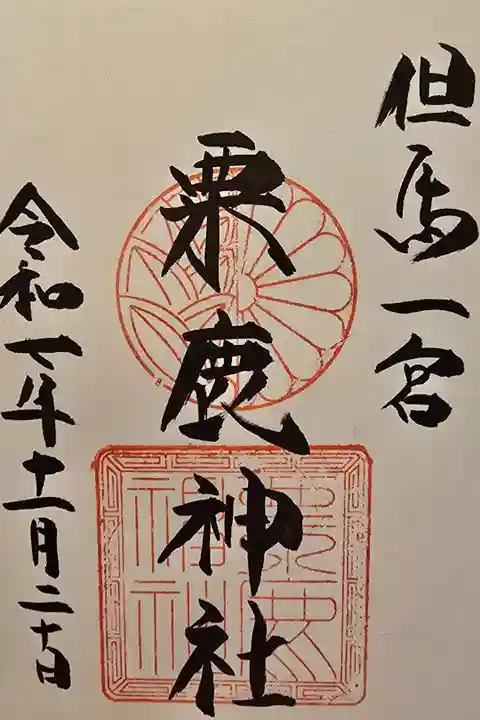 但馬一宮
粟鹿神社
令和七年十一月二十日
粟鹿
神社